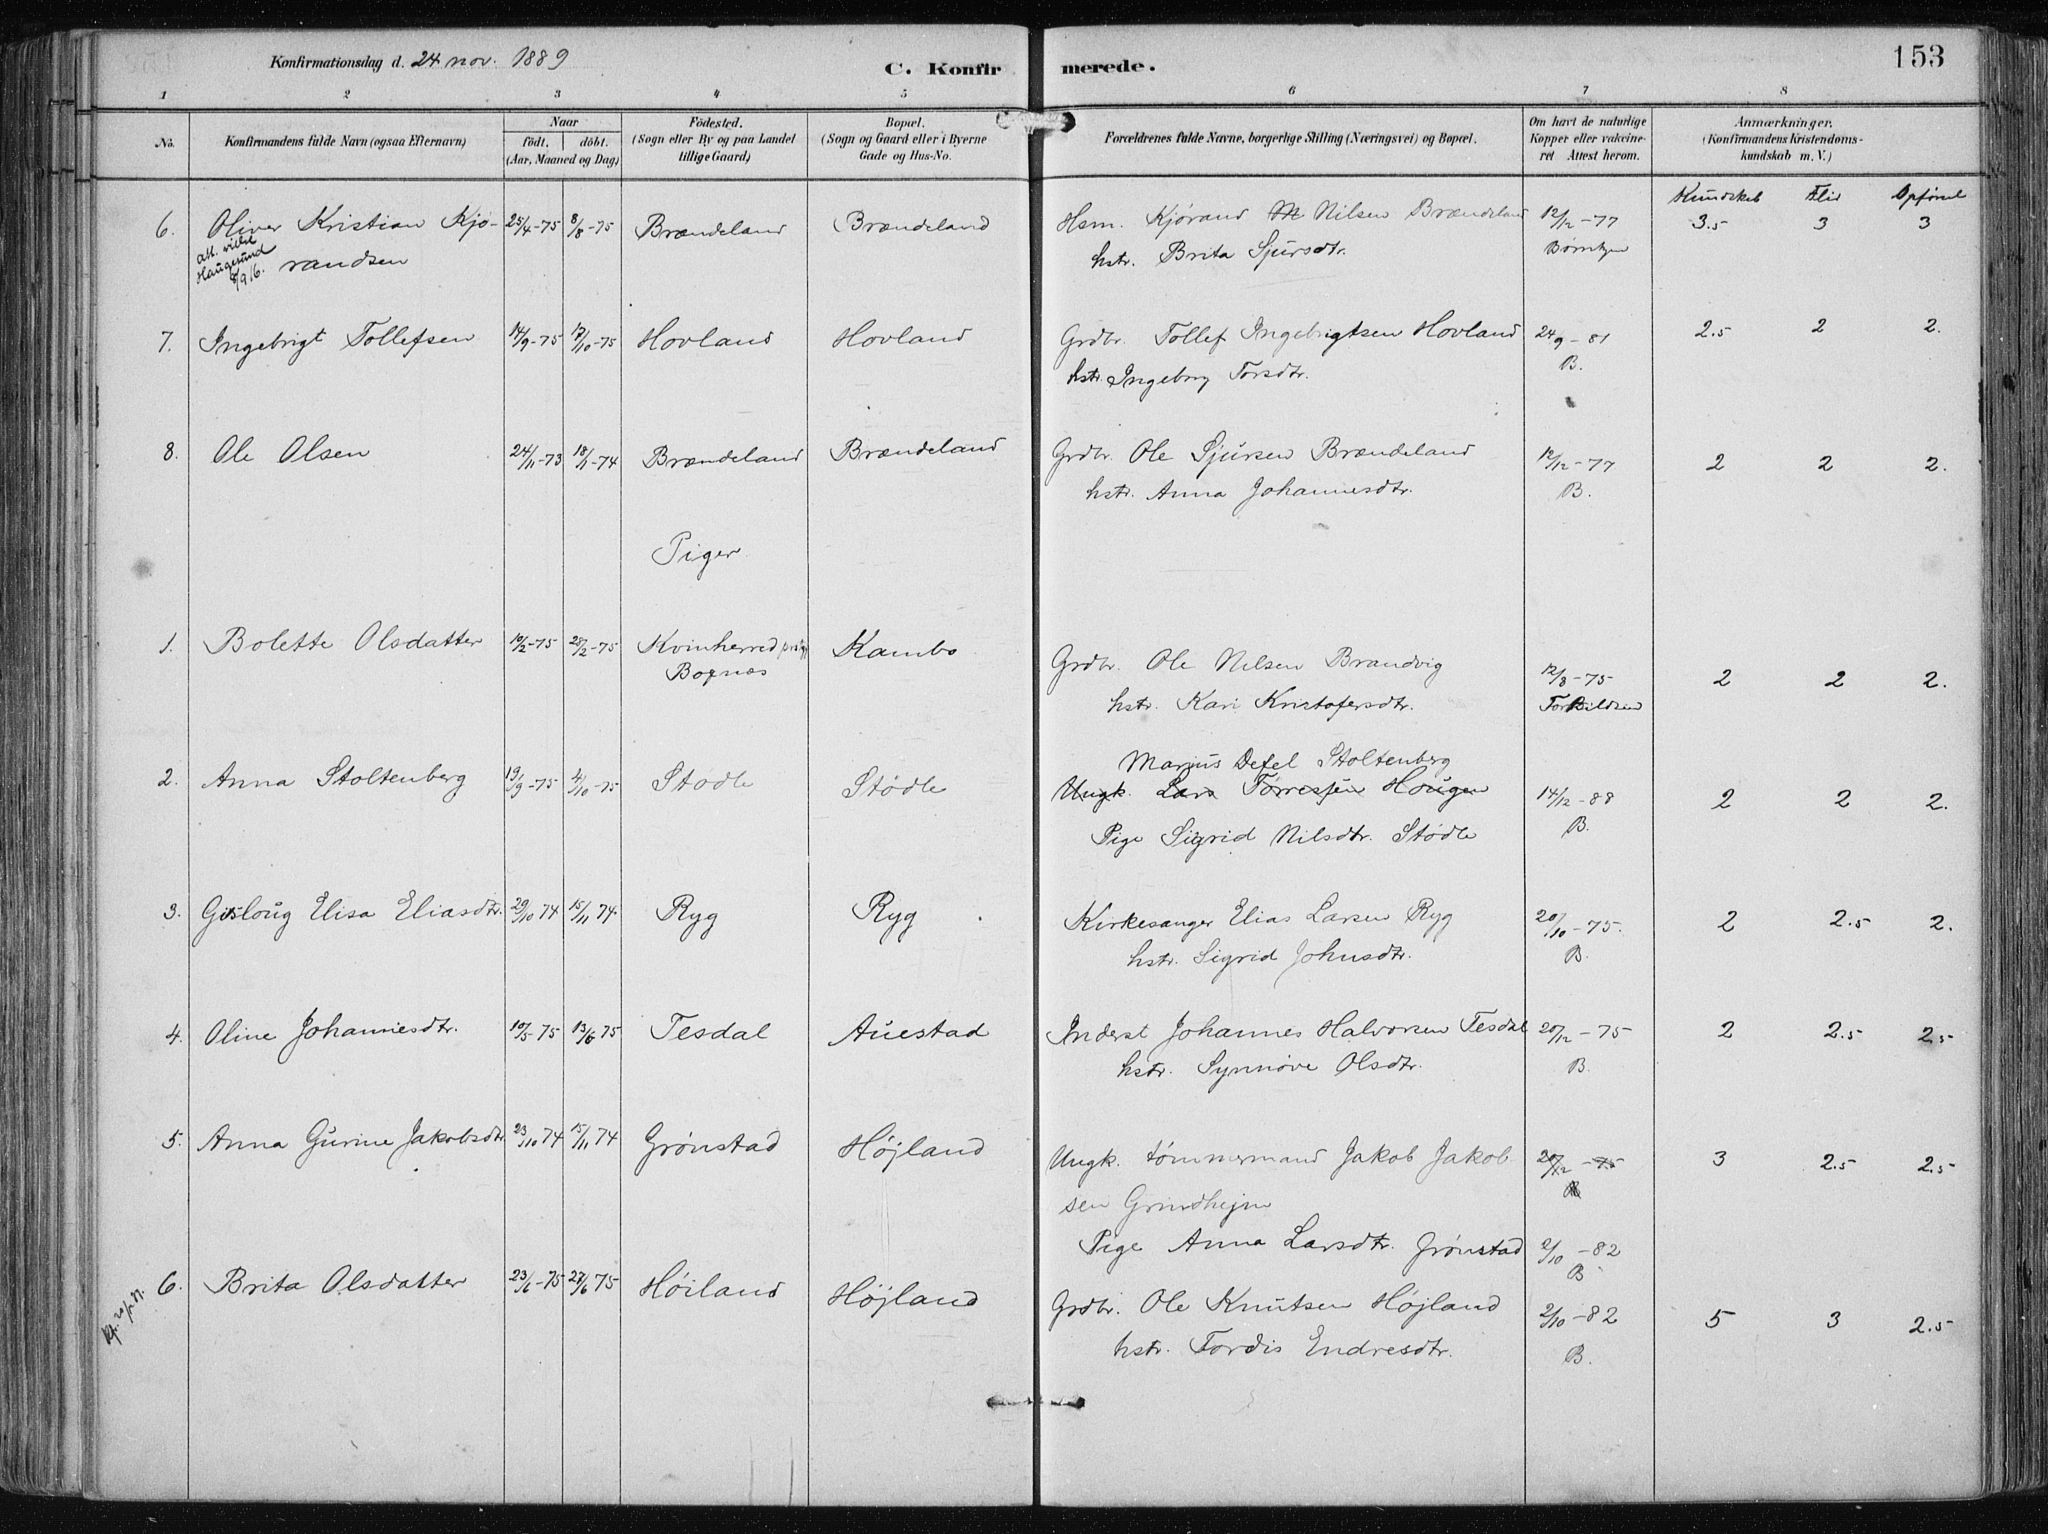 Konfirmationsdag d. 24 nov. 1889
C. Konfirmerede.
153
1 2 3 4 5 6 7 8
No. Konfirmandens fulde Navn (ogsaa Efternavn) Naar födt. döbt. (Aar, Maaned og Dag) Födested. (Sogn eller By og paa Landet tillige Gaard) Bopæl. (Sogn og Gaard eller i Byerne Gade og Hus-No. Forældrenes fulde Navne, borgerlige Stilling (Næringsvei) og Bopæl. Om havt de naturlige Kopper eller vakcineret Attest herom. Anmærkninger. (Konfirmandens Kristendomskundskab m. V.)
Kundskab Flid Opförsel
6. Oliver Kristian Kjø- 25/4-75 8/8-75 Brændeland Brændeland Hsm. Kjørand Nilsen Brændeland 12/12-77 3.5 3 3
att. Haugesund 8/9 16. randsen hstr. Brita Sjursdtr.
7. Ingebrigt Tollefsen 14/9-75 17/10-75 Hovland Hovland Grdbr. Tollef Ingebrigtsen Hovland 24/9-81 2.5 2 2.
hstr. Ingeborg Torsdtr. B.
8. Ole Olsen 24/11-73 18/1-74 Brændeland Brændeland Grdbr. Ole Sjursen Brændeland 12/12-77 2 2 2.
hstr. Anna Johannesdtr. B.
Piger
1. Bolette Olsdatter 10/2-75 28/2-75 Kvinherred Kambo Grdbr. Ole Nilsen Brandvig 12/8-75 2 2 2.
hstr. Kari Kristofersdtr.
2. Anna Stoltenberg 19/9-75 4/10-75 Stodle Stødle Marius Defel Stoltenberg
Ungk. Lars Tørresen Hougen 14/12-88 2 2 2.
Pige Sigrid Nilsdtr. Stødle B.
3. Gisloug Elisa Eliasdtr. 29/10 74 15/11 74. Ryg Ryg Kirkesanger Elias Larsen Ryg 20/10-75. 2 2.5 2.
hstr. Sigrid Johnsdtr. B.
4. Oline Johannesdtr. 10/5 75 13/6 75 Tesdal Auestad Inderst Johannes Halvorsen Tesdal 20/12-75 2 2.5 2.5
hstr. Synnøve Olsdtr. B.
5. Anna Gurine Jakobsdtr 23/10 74 15/11 74 Grønstad Højland Ungk. tømmermand Jakob Jakob 20/12-75 3 2.5 2.5
sen Grindhejm B
Pige Anna Larsdtr. Grønstad 2/10-82
B
6. Brita Olsdatter 23/6-75 27/6 75 Høiland Højland Grdbr. Ole Knutsen Højland 2/10-82 5 3 2.5
hstr. Tordis Endresdtr. B.